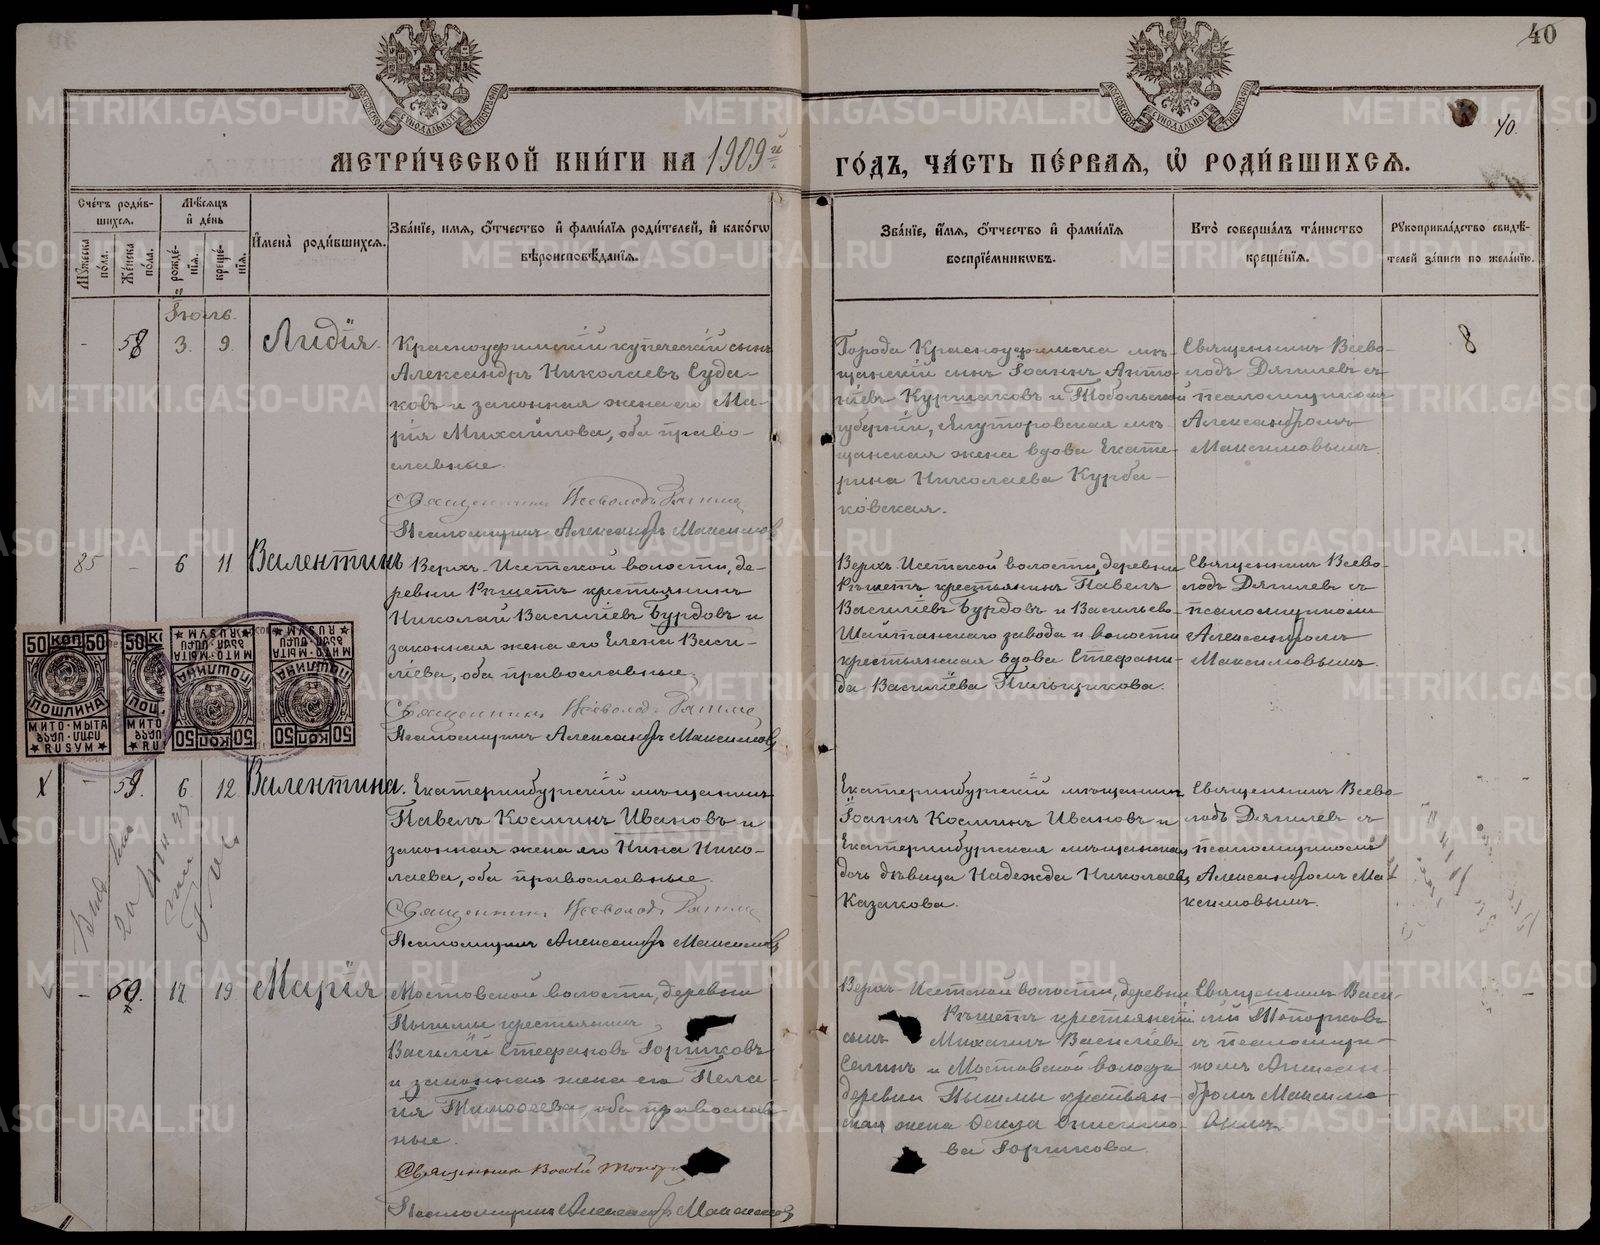 40
40.
МЕТРИ́ЧЕСКОЙ КНИ́ГИ НА 1909й
ГО́ДЪ, ЧА́СТЬ ПЕ́РВАЯ, Ѡ РОДИ́ВШИХСЯ.
Сче́тъ роди́в-
шихся.
Му́жеска по́ла.
Же́нска по́ла.
Мѣ́сяцъ
и де́нь
рожде́-
нїя.
креще́-
нїя.
И҆мена̀ роди́вшихся.
Зва́нїе, имя, о҆́тчество и҆ фами́лїя роди́телей, и҆ како́гѡ
вѣроисповѣ́данїя.
Зва́нїе, и҆́мя, о҆́тчество и҆ фами́лїя
воспрїе́мникѡвъ.
Кто̀ соверша́лъ та́инство
креще́нїя.
Рꙋкоприкла́дство свидѣ́-
телей за́писи по жела́нїю.
Іюль.
- 58 3. 9. Лидія.
Красноуфимскій купеческій сынъ
Александръ Николаевъ Суда-
ковъ и законная жена его Ма-
рія Михайлова, оба право-
славные.
Священникъ Всеволодъ
Псаломщикъ Александръ Максимовъ
Города Красноуфимска мѣ-
щанскій сынъ Іоаннъ Анто-
ніевъ и Тобольской
губерніи, Ялуторовская мѣ-
щанская жена вдова Екате-
рина Николаева Курба-
ковская.
Священникъ Всево-
лодъ съ
псаломщикомъ
Александромъ
Максимовымъ.
8
85 - 6 11 Валентинъ
Верхъ-Исетской волости, де-
ревни Рѣшетъ крестьянинъ
Николай Василіевъ Бурдовъ и
законная жена его Елена Васи-
ліева, оба православные.
Священникъ Всеволодъ
Псаломщикъ Александръ Максимовъ
Верхъ-Исетской волости, деревни
Рѣшетъ крестьянинъ Павелъ
Василіевъ Бурдовъ и Васильево-
Шайтанскаго завода и волости
крестьянская вдова Стефани-
да Василіева Пильщикова.
Священникъ Всево-
лодъ съ
псаломщикомъ
Александромъ
Максимовымъ.
50 КОП 50
ПОШЛИНА
МИТО·МЫТА
RUSYM
X - 59. 6. 12 Валентина.
Екатеринбургскій мѣщанинъ
Павелъ Косминъ Ивановъ и
законная жена его Нина Нико-
лаева, оба православные.
Священникъ Всеволодъ
Псаломщикъ Александръ Максимовъ
Екатеринбургскій мѣщанинъ
Іоаннъ Косминъ Ивановъ и
Екатеринбургская мѣщанская
дочь дѣвица Надежда Николаева
Казакова.
Священникъ Всево-
лодъ съ
псаломщикомъ
Александромъ Ма-
ксимовымъ.
- 60. 17 19 Марія
Мостовской волости, деревни
Пышмы крестьянинъ
Василій Стефановъ Горшковъ
и законная жена его Пела-
гія Тимоѳеева, оба православ-
ные.
Священникъ Василій
Псаломщикъ Александръ Максимовъ
Верхъ-Исетской волости, деревни
Рѣшетъ крестьянскій
сынъ Михаилъ Василіевъ
Селинъ и Мостовской волости
деревни Пышмы крестьян-
ская жена Ѳекла Онисимо-
ва Горшкова.
Священникъ Васи-
лій Топорковъ
съ псаломщи-
комъ Алексан-
дромъ Максимо-
вымъ.
METRIKI.GASO-URAL.RU